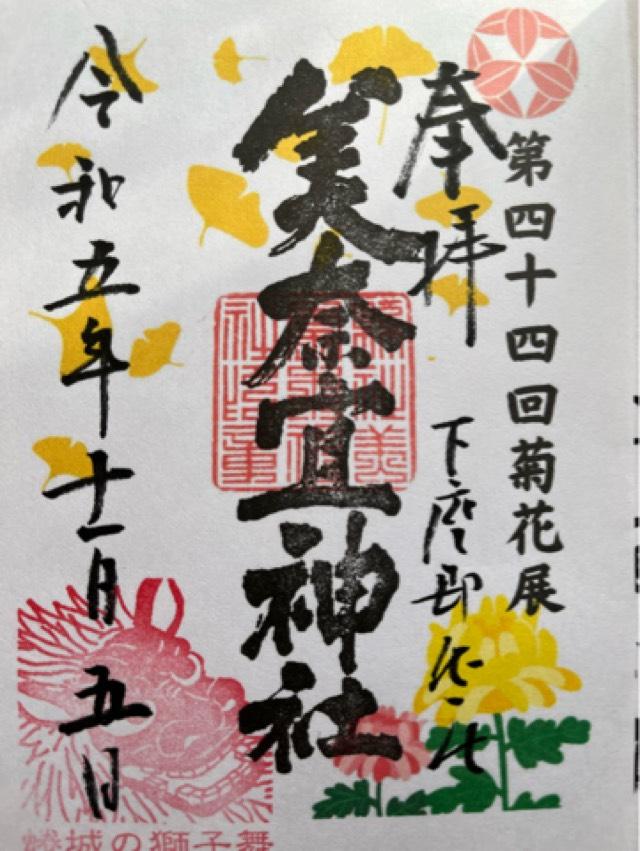 第四十四回菊花展
奉拝
下座郡
美奈宜神社
令和五年十一月五日
蜷城の獅子舞